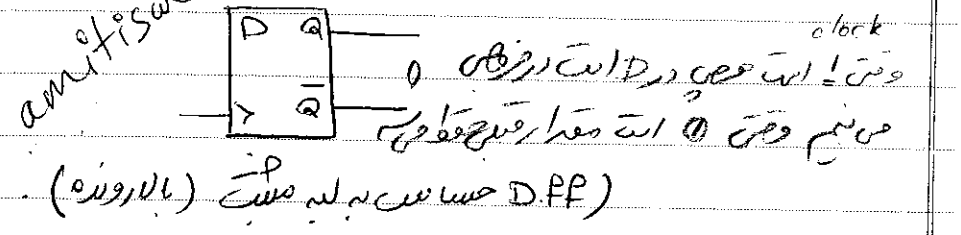 amitis
D Q
clock
وقتی 1 است هرچی در D است در خروجی
Q̅
می بینیم وقتی 0 است مقدار قبلی حفظ می‌شه
(D.ff حساس به لبه مثبت (بالارونده)).